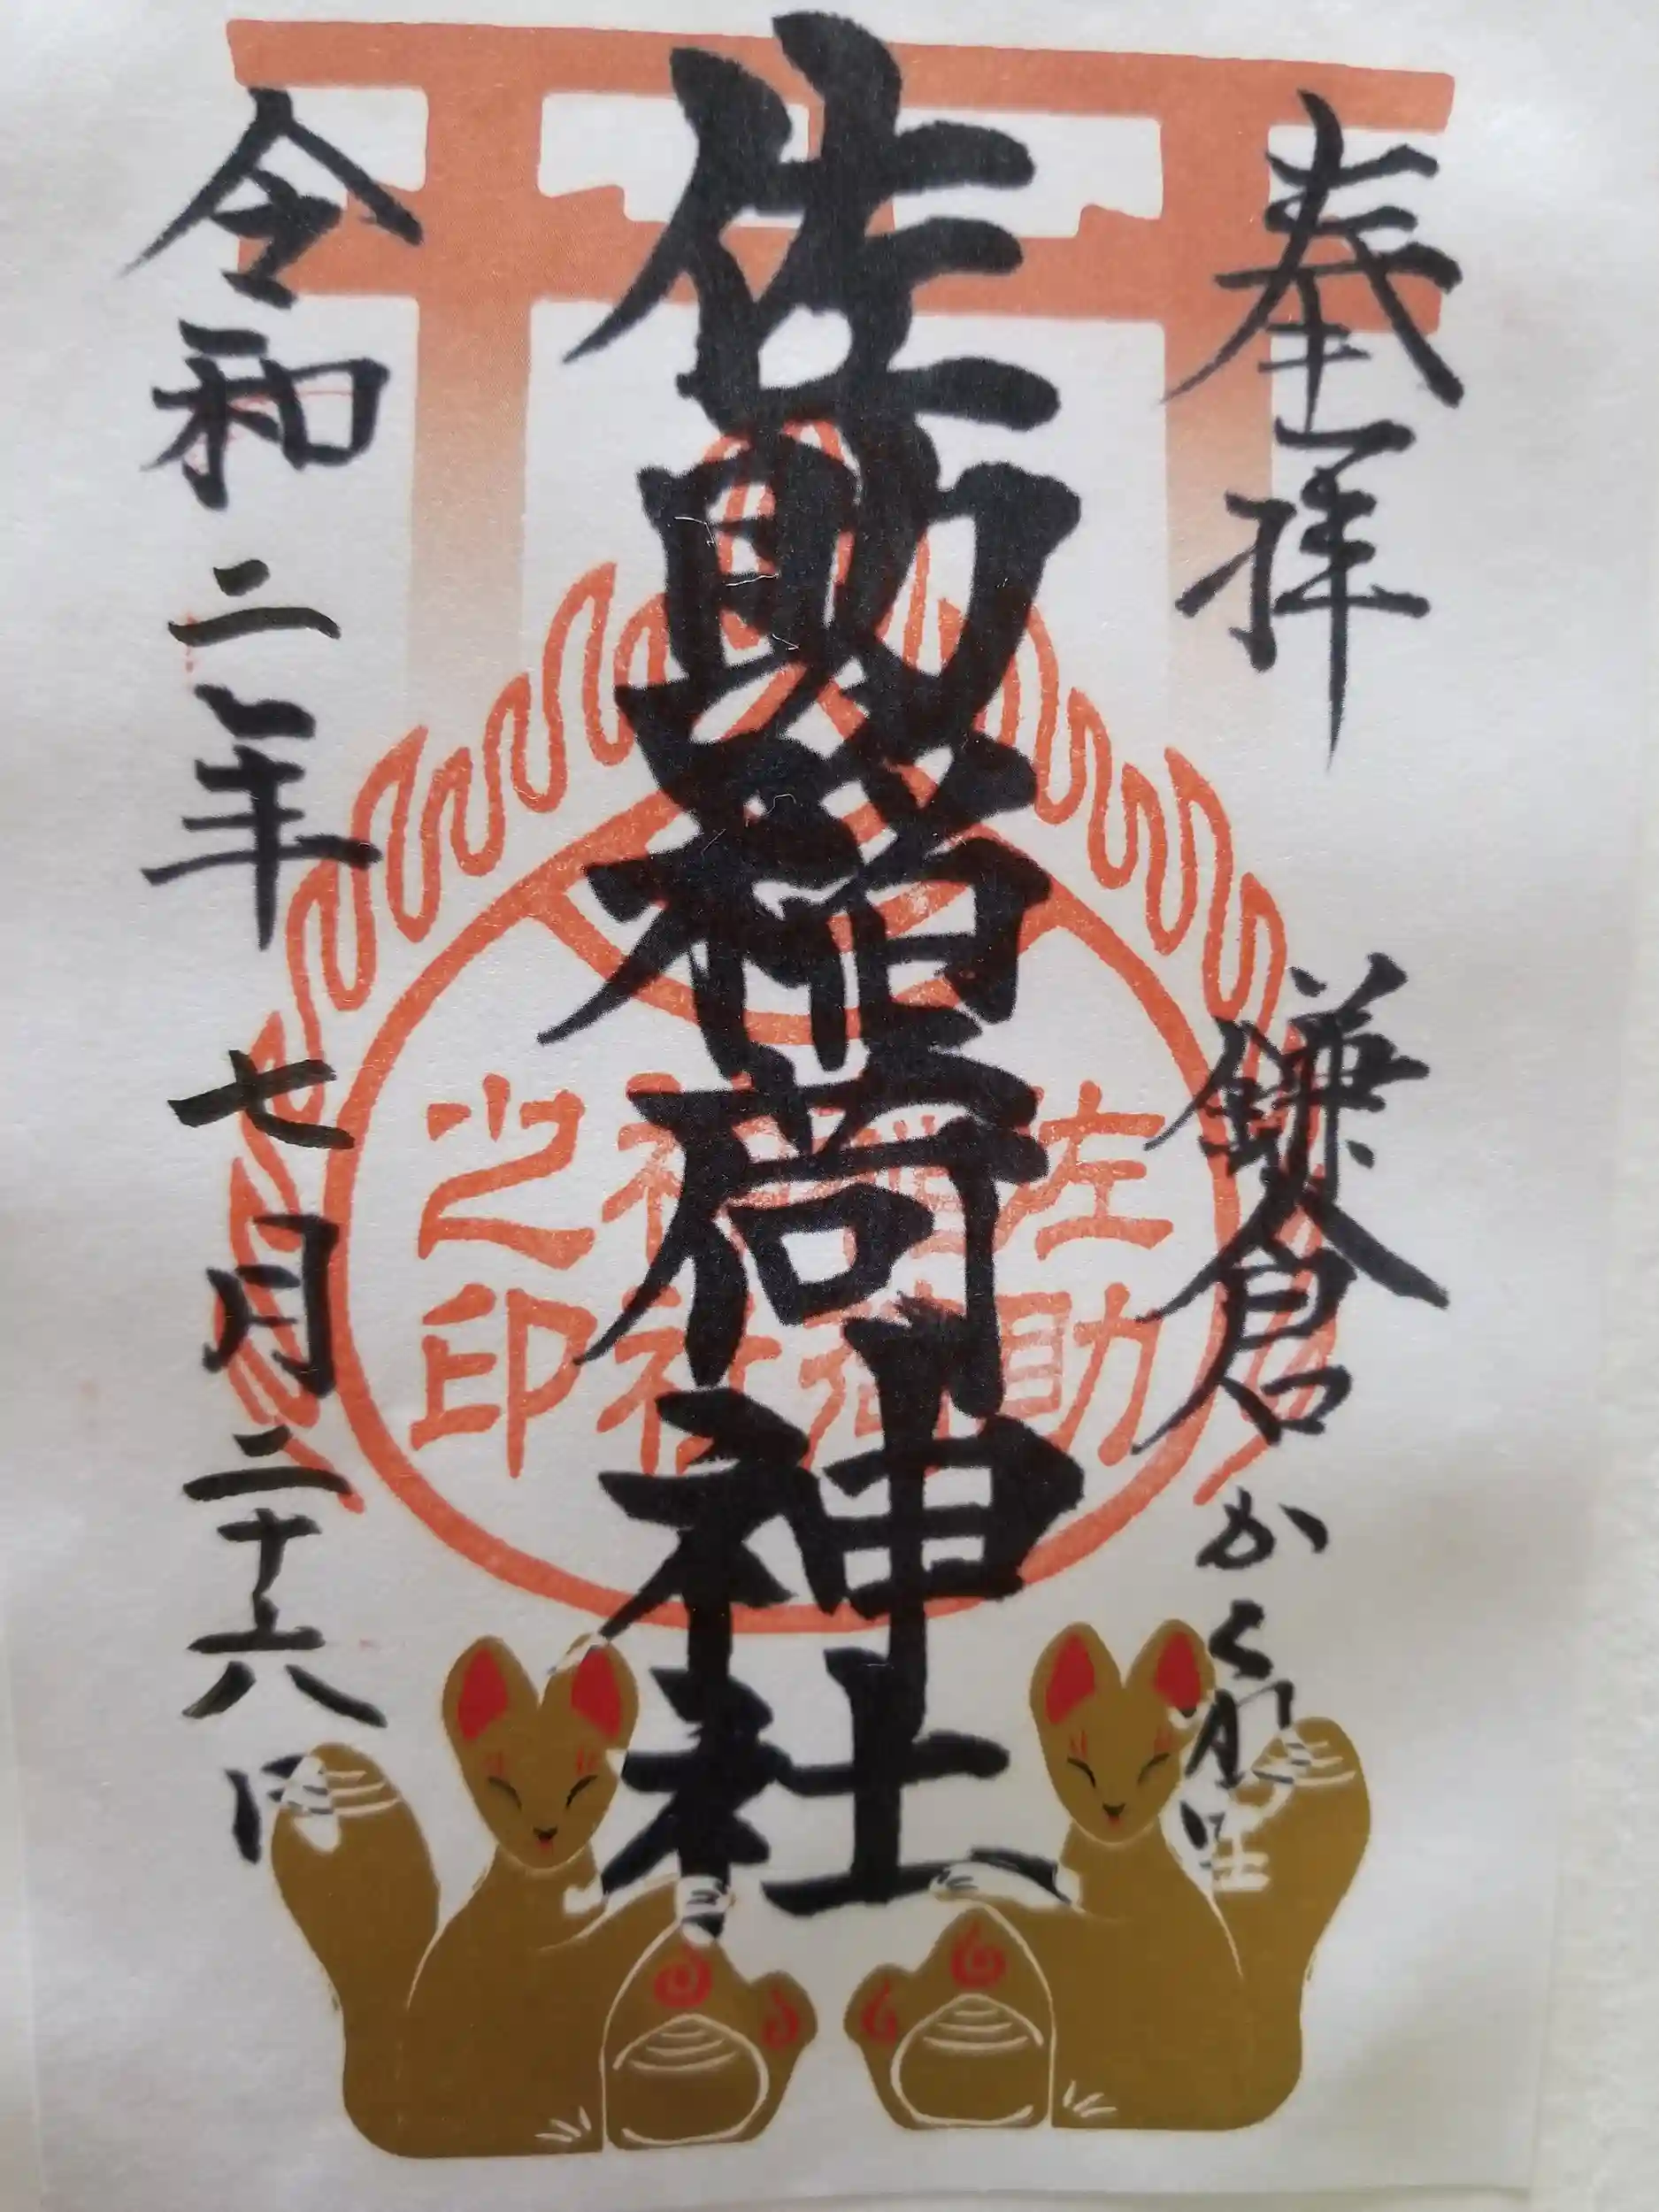 奉拝
鎌倉かくれ里
佐助稲荷神社
佐助
稲荷
神社
之印
令和二年七月二十六日